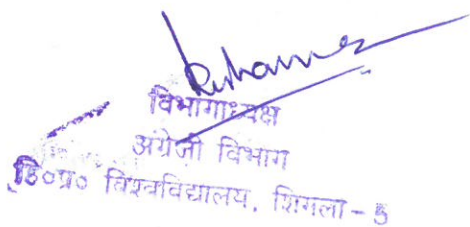 विभागाध्यक्ष
अंग्रेजी विभाग
हि०प्र० विश्वविद्यालय, शिमला - 5